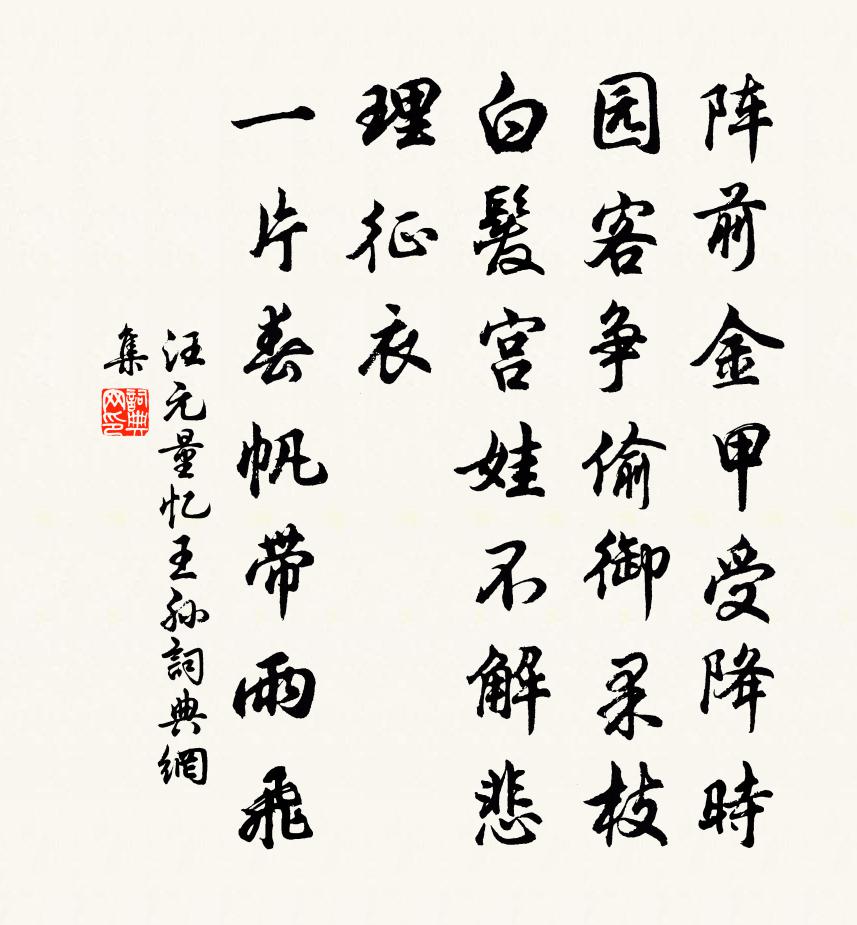 阵前金甲受降时
园客争偷御果枝
白髮宫娃不解悲
理征衣
一片春帆带雨飛
汪元量忆王孙詞典網
集
詞典网印